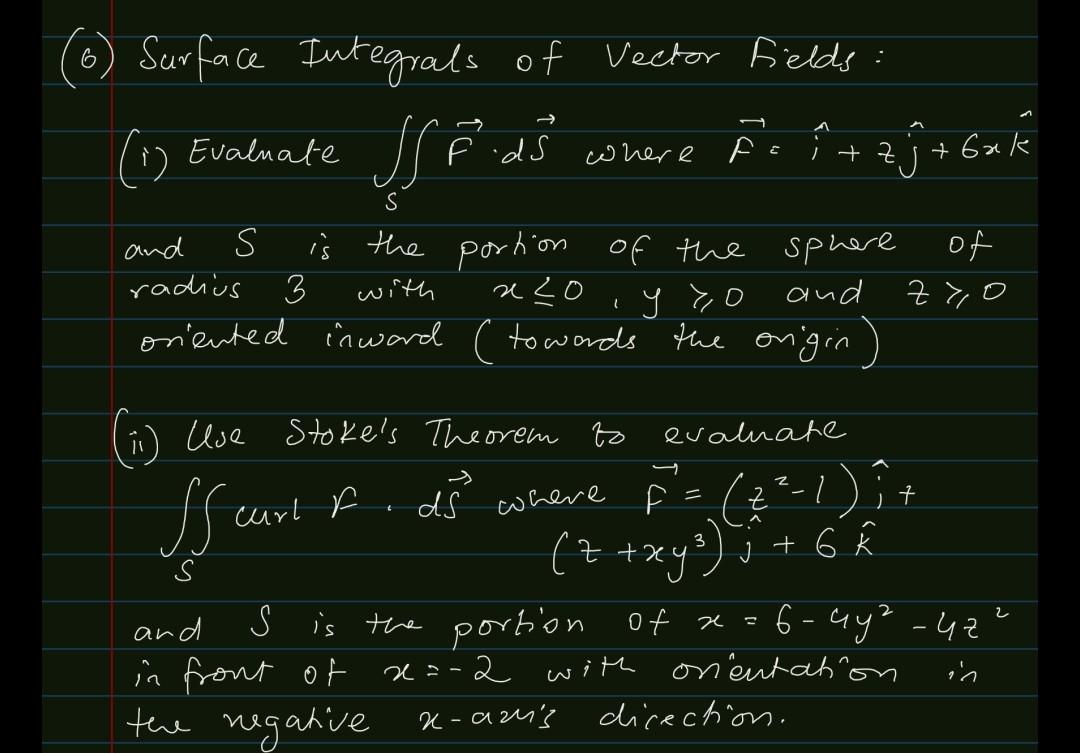 (6) Surface Integrals of Vector Fields :
(i) Evaluate ∬_S F⃗ · dS⃗ where F⃗ = î + z ĵ + 6x k̂
and S is the portion of the sphere of
radius 3 with x ≤ 0, y ≥ 0 and z ≥ 0
oriented inward (towards the origin)
(ii) Use Stoke's Theorem to evaluate
∬_S curl F⃗ · dS⃗ where F⃗ = (z²-1) î +
(z + xy³) ĵ + 6 k̂
and S is the portion of x = 6 - 4y² - 4z²
in front of x = -2 with orientation in
the negative x-axis direction.